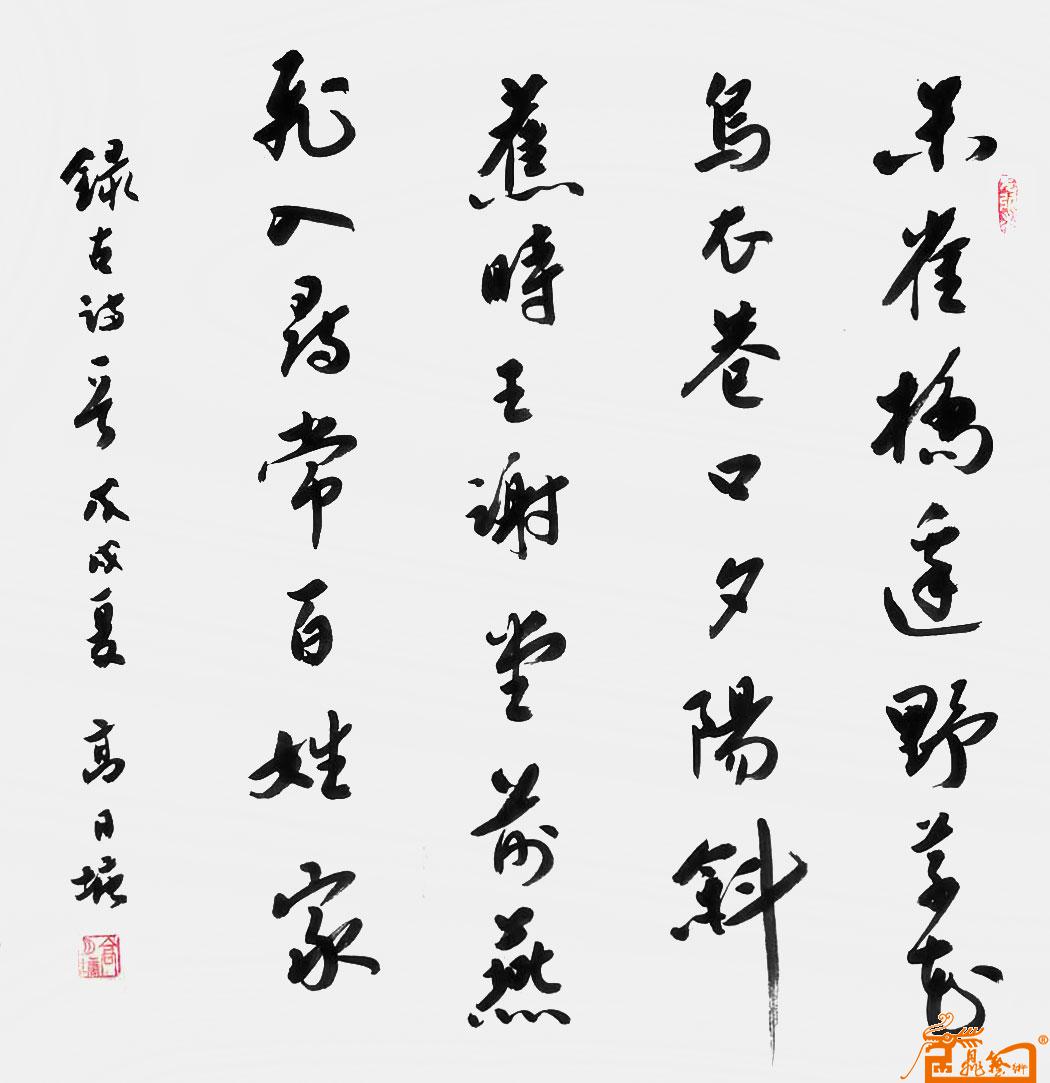 朱雀橋邊野草花
烏衣巷口夕陽斜
舊時王謝堂前燕
飛入尋常百姓家
錄古詩一首 戊戌夏 高日
鼎藝術®